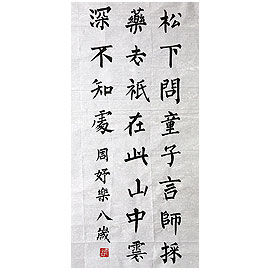 松下問童子言師採
藥去祇在此山中雲
深不知處 周妤樂八歲